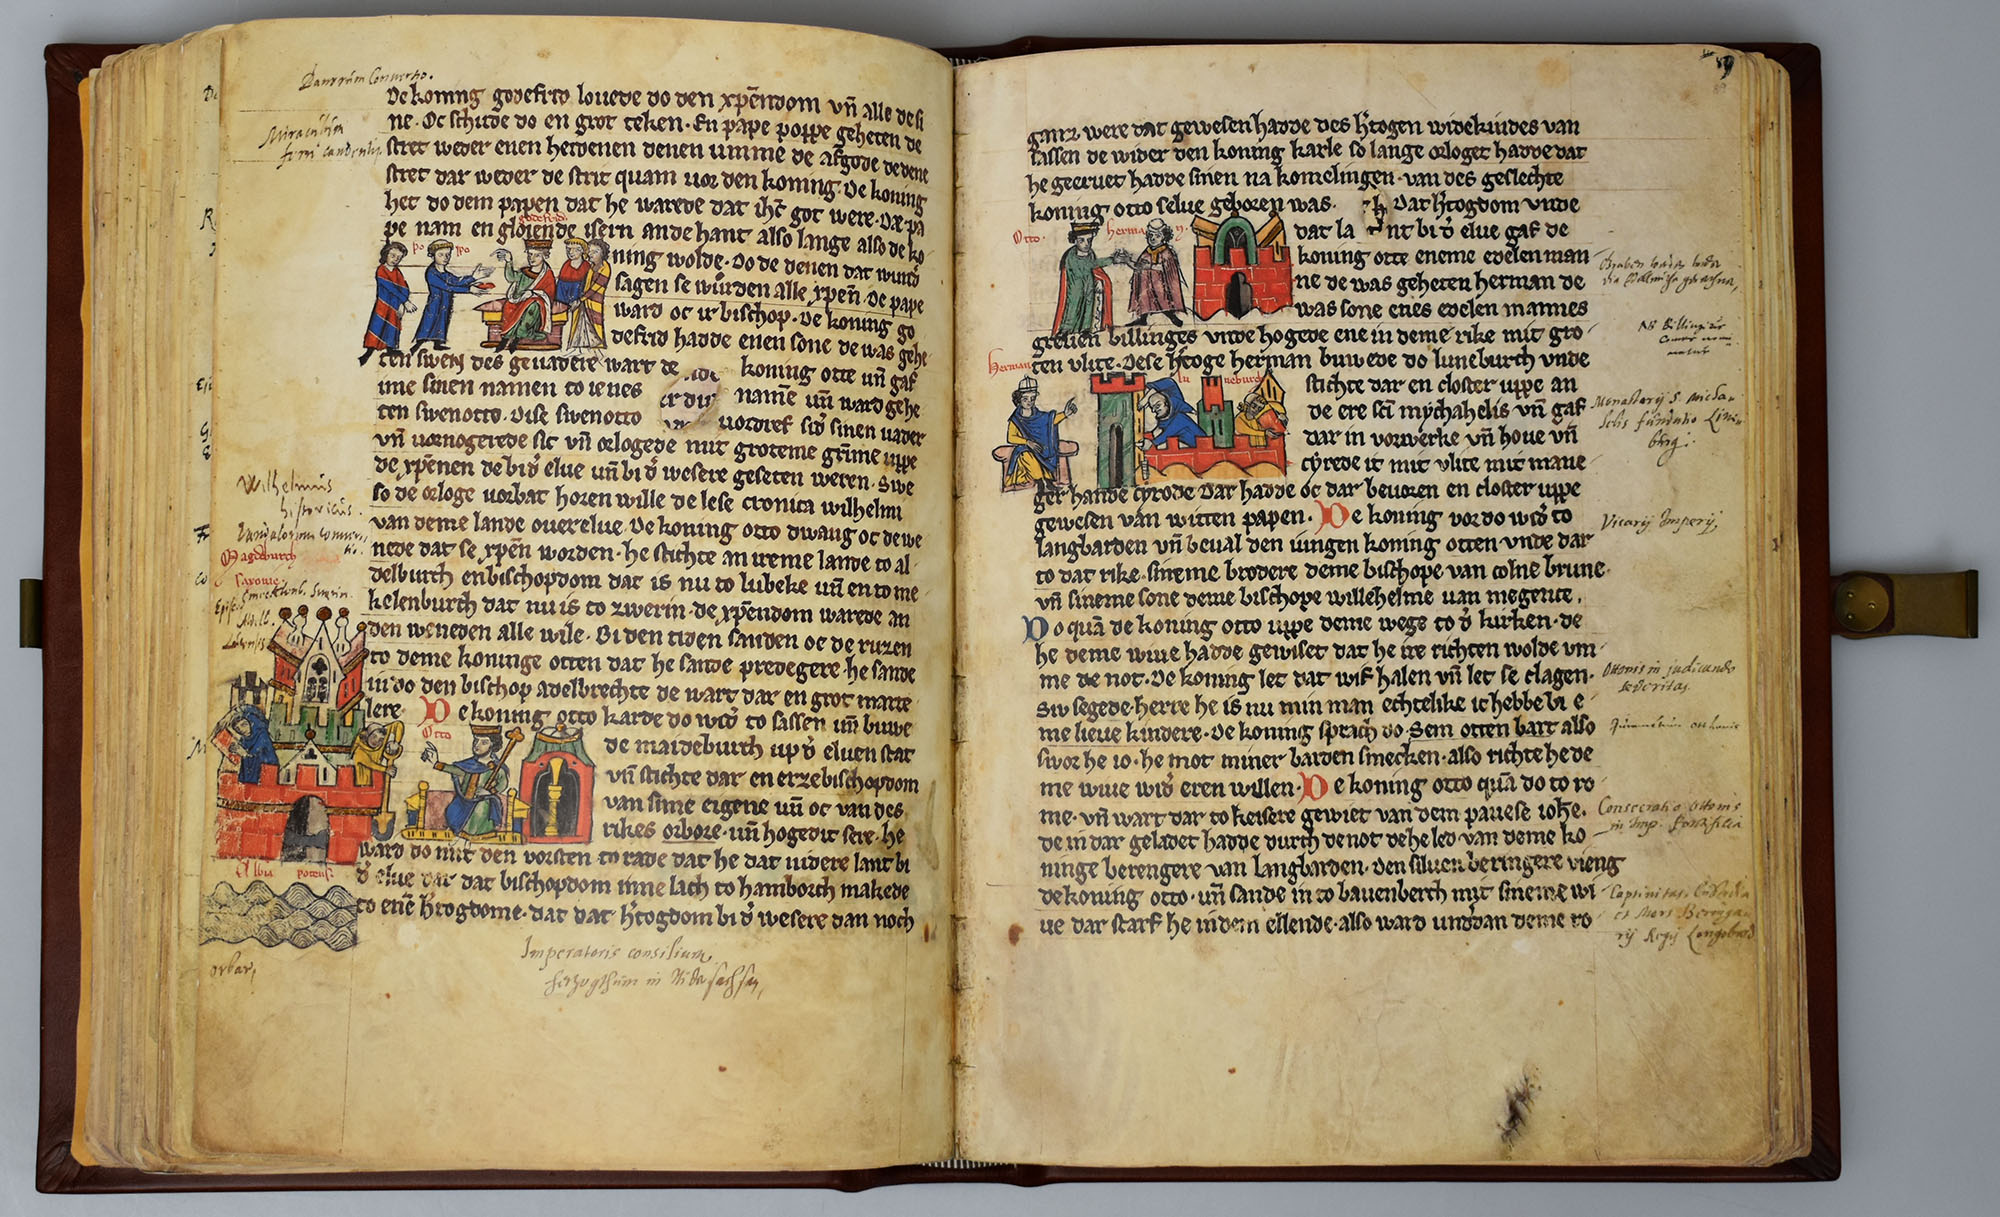 De koning godefrid louede do den xp̄endom vn̄ alle de si
ne · Oc schide do en grot teken · En pape poppe geheten de
stret weder enen heidenen denen umme de afgode de dene
stret dar weder de strit quam uor den koning · De koning
het do dem papen dat he warede dat ih̄c got were · De pa
pe nam en gloiende isern an de hant also lange also de ko
ning wolde · Do de denen dat wurd
sagen se wurden alle xp̄en · De pape
ward oc ir bischop · De koning go
defrid hadde enen sone de was gehe
ten swen des geuadere wart de koning otte vn̄ gaf
ime sinen namen to ienes namē vn̄ ward gehe
ten swenotto · Dise swenotto uordref sid sinen uader
vn̄ uornogerede sic vn̄ orlogede mit groteme grīme uppe
de xp̄enen de bi d' elue vn̄ bi d' wesere geseten weren · Swe
so de orloge uorbat horen wille de lese cronica wilhelmi
van deme lande ouerelue · De koning otto dwang oc de we
nede dat se xp̄en worden · he stichte an ireme lande to al
delburch en bischopdom dat is nu to lubeke vn̄ en to me
kelenburch dat nu is to zwerin · de xp̄endom warede an
den weneden alle wile · Bi den tiden sanden oc de ruzen
to deme koninge otten dat he sande predegere · he sande
in do den bischop adelbrechte de wart dar en grot marte
lere · De koning otto karde do wid' to sassen vn̄ buwe
de maideburch up d' eluen stat
vn̄ stichte dar en erzebischopdom
van sime eigene vn̄ oc van des
rikes orbore · vn̄ hogedit sere · he
ward do mit den vorsten to rade dat he dat nidere lant bi
d' elue dar dat bischopdom inne lach to hamborch makede
to enē h'togdome · dat dat h'togdom bi d' wesere dan noch
Miraculum
ferri candentis
godefrid
po ppo
Wilhelmus
historicus
Magdeburch
saxonie
Otto
Albia
orbar
Imperatoris consilium
herzogthum in Nidersachsen
ganz were dat gewesen hadde des h'togen widekindes van
sassen de wider den koning karle so lange orloget hadde dat
he geeruet hadde sinen na komelingen · van des geslechte
koning otto selue geboren was · Dat h'togdom vnde
dat la nt bi d' elue gaf de
koning otte eneme edelen man
ne de was geheten herman de
was sone enes edelen mannes
greuen billinges vnde hogede ene in deme rike mit gro
ten vlite · Dese h'toge herman buwede do luneburch vnde
stichte dar en closter uppe an
de ere sc̄i mychahelis vn̄ gaf
dar in vorwerke vn̄ houe vn̄
cyrede it mit vlite mit mane
ger hande cyrode Dar hadde oc dar beuoren en closter uppe
gewesen van witten papen · De koning vor do wid' to
langbarden vn̄ beual den iungen koning otten vnde dar
to dat rike · sineme brodere deme bischope van colne brune
vn̄ sineme sone deme bischope willehelme uan megence ·
Do quā de koning otto uppe deme wege to d' kirken · de
he deme wiue hadde gewiset dat he ire richten wolde vm
me de not · De koning let dat wif halen vn̄ let se clagen ·
Siv segede · herre he is nu min man echtelike ic hebbe bi e
me lieue kindere · De koning sprach do · Sem otten bart also
swor he io · he mot miner barden smecken · also richte he de
me wiue wid' eren willen · De koning otto quā do to ro
me · vn̄ wart dar to keisere gewiet van dem pauese ioh̄e ·
de in dar geladet hadde durch de not de he led van deme ko
ninge berengere van langbarden · Den seluen beringere vieng
de koning otto · vn̄ sande in to bauenberch mit sineme wi
ue dar starf he in dem ellende · also ward und'dan deme ro
Otto
herman
Herman
lu neburch
89
NB Billing
Monasterij S. Micha
elis fundatio Lüne
Vicarij Imperij
Ottonis in judicando
severitas
Consecratio Ottonis
in Imp.
et Mors Berenga
rij Regis